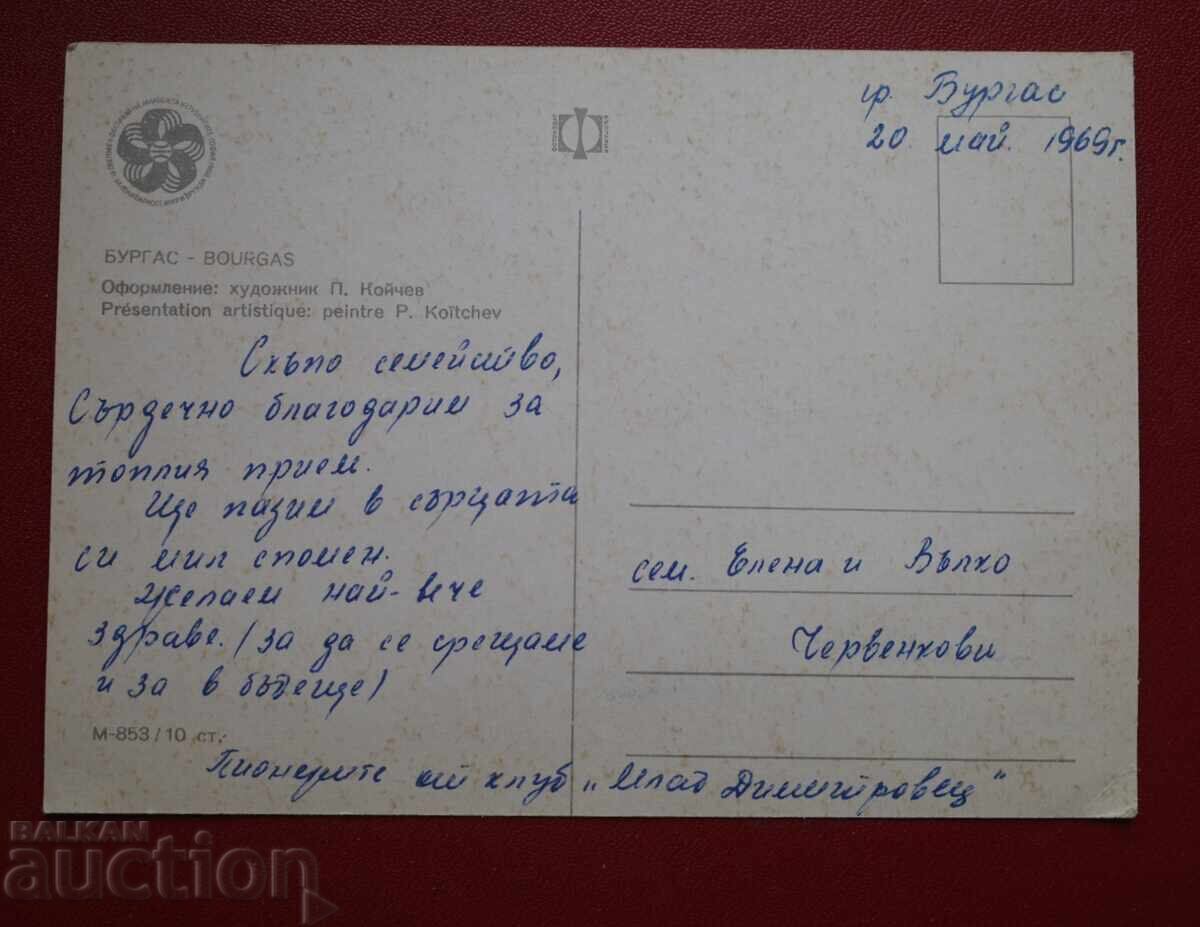 гр. Бургас
20 май. 1969г.
БУРГАС - BOURGAS
Оформление: художник П. Койчев
Présentation artistique: peintre P. Koïtchev
Скъпо семейство,
Сърдечно благодарим за
топлия прием.
Ще пазим в сърцата
си мил спомен.
Желаем най-вече
здраве. (за да се срещаме
и за в бъдеще)
М-853/10 ст.
Пионерите от клуб „Млад Димитровец"
сем. Елена и Вълко
Червенкови
BALKAN
auction